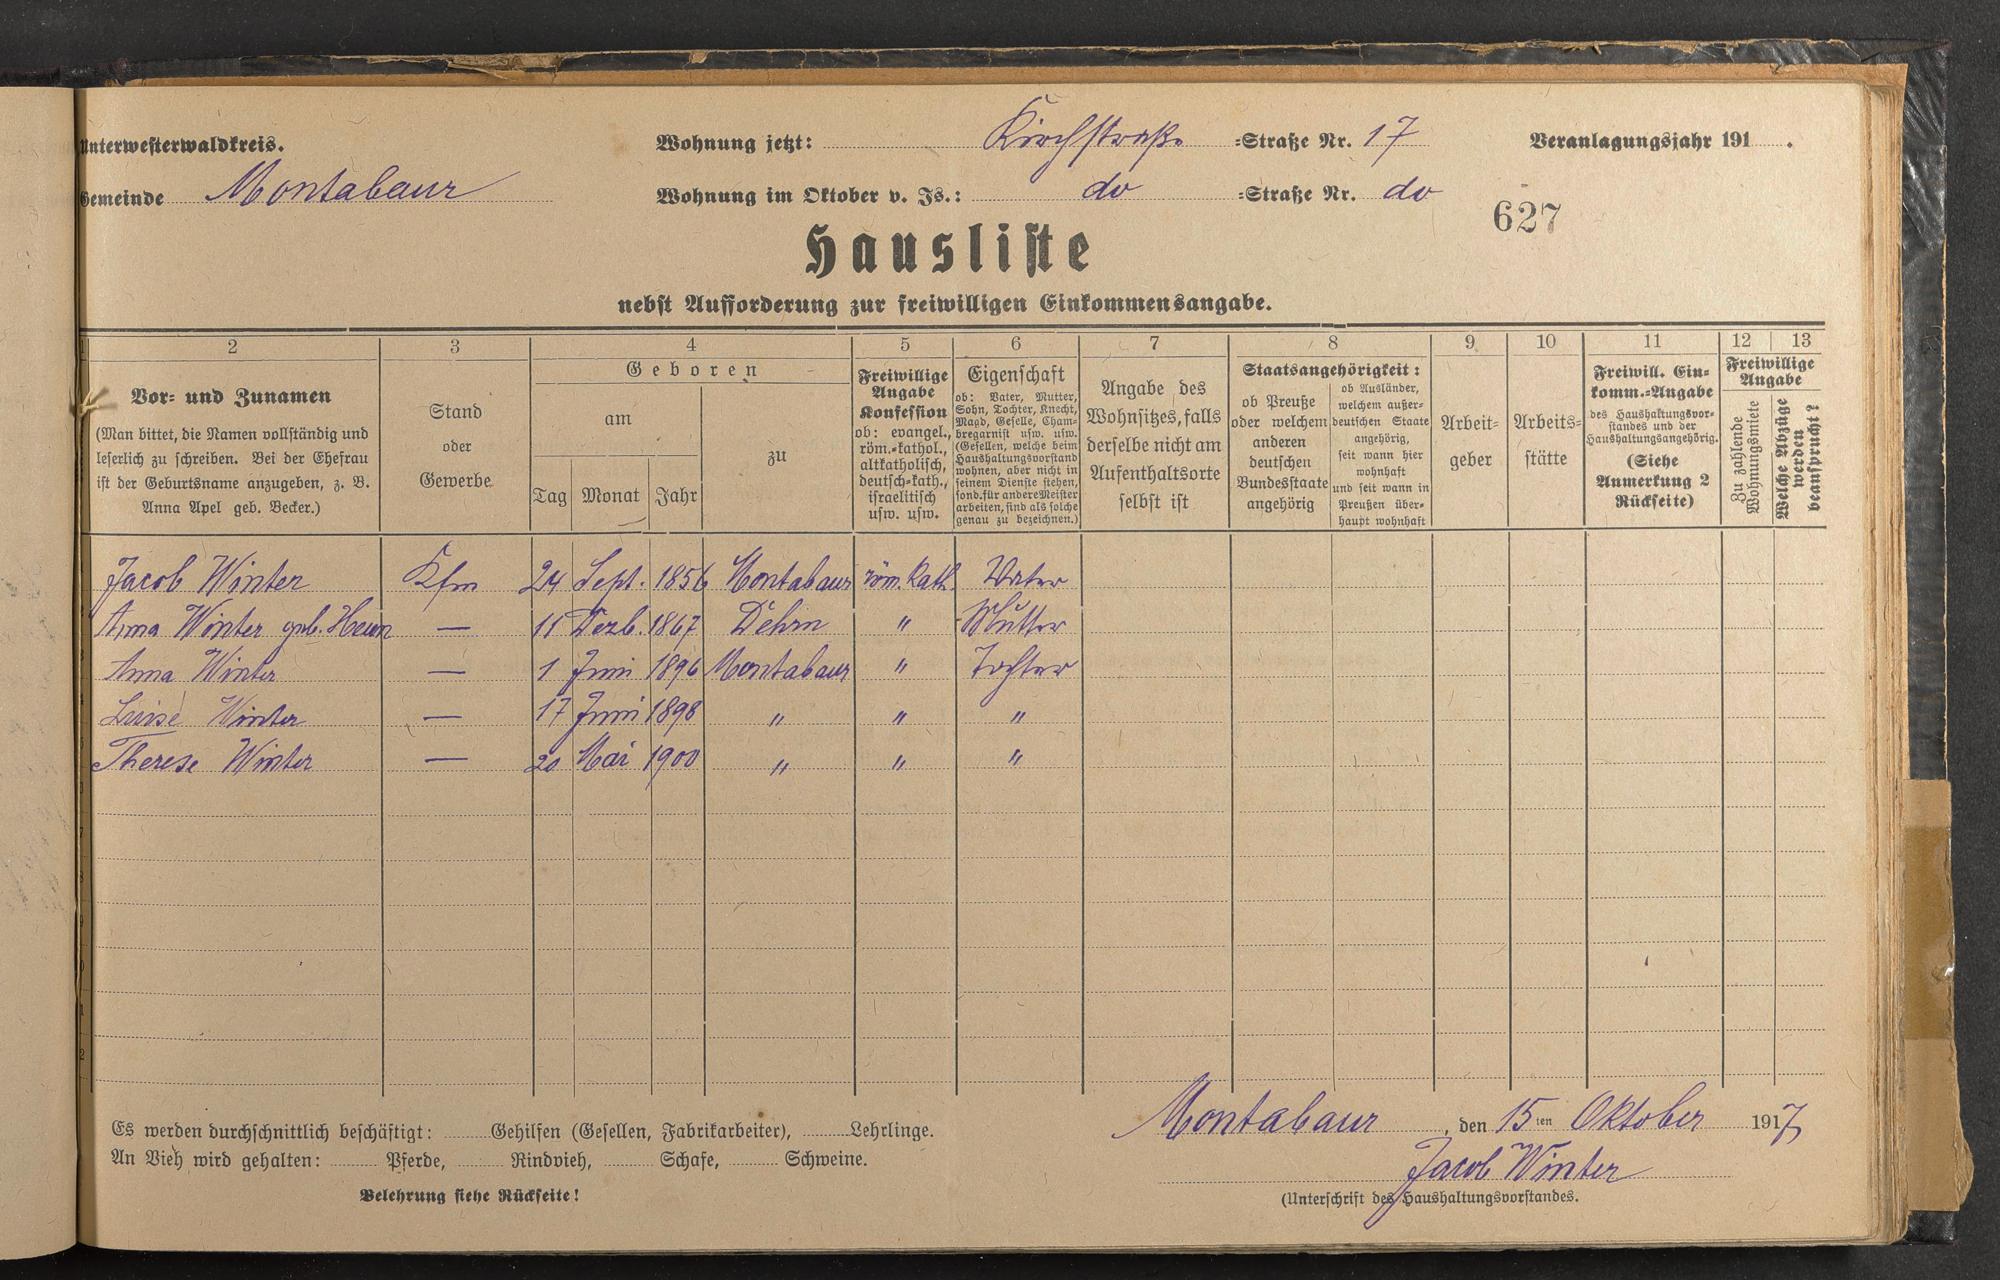 Unterwesterwaldkreis.
Wohnung jetzt: Kirchstraße =Straße Nr. 17
Veranlagungsjahr 191 .
Gemeinde Montabaur
Wohnung im Oktober v. Js.: do =Straße Nr. do
627
Hausliste
nebst Aufforderung zur freiwilligen Einkommensangabe.
2 3 4 5 6 7 8 9 10 11 12 13
Vor- und Zunamen
(Man bittet, die Namen vollständig und
leserlich zu schreiben. Bei der Ehefrau
ist der Geburtsname anzugeben, z. B.
Anna Apel geb. Becker.)
Stand
oder
Gewerbe
Geboren
am
Tag Monat Jahr
zu
Freiwillige
Angabe
Konfession
ob: evangel.,
röm.-kathol.,
altkatholisch,
deutsch-kath.,
israelitisch
usw. usw.
Eigenschaft
ob: Vater, Mutter,
Sohn, Tochter, Knecht,
Magd, Geselle, Cham-
bregarnist usw. usw.
(Gesellen, welche beim
Haushaltungsvorstand
wohnen, aber nicht in
seinem Dienste stehen,
sond. für andere Meister
arbeiten, sind als solche
genau zu bezeichnen.)
Angabe des
Wohnsitzes, falls
derselbe nicht am
Aufenthaltsorte
selbst ist
Staatsangehörigkeit:
ob Preuße
oder welchem
anderen
deutschen
Bundesstaate
angehörig
ob Ausländer,
welchem außer-
deutschen Staate
angehörig,
seit wann hier
wohnhaft
und seit wann in
Preußen über-
haupt wohnhaft
Arbeit-
geber
Arbeits-
stätte
Freiwill. Ein-
komm.-Angabe
des Haushaltungsvor-
standes und der
Haushaltungsangehörig.
(Siehe
Anmerkung 2
Rückseite)
Freiwillige
Angabe
Zu zahlende
Wohnungsmiete
Welche Abzüge
werden
beansprucht?
Jacob Winter Kfm 24 Sept. 1856 Montabaur röm. kath. Vater
Anna Winter geb. Heun — 11 Dezb. 1867 Dehrn " Mutter
Anna Winter — 1 Juni 1896 Montabaur " Tochter
Luise Winter — 17 Juni 1898 " " "
Therese Winter — 20 Mai 1900 " " "
Es werden durchschnittlich beschäftigt: Gehilfen (Gesellen, Fabrikarbeiter), Lehrlinge.
An Vieh wird gehalten: Pferde, Rindvieh, Schafe, Schweine.
Belehrung siehe Rückseite!
Montabaur, den 15ten Oktober 1917
Jacob Winter
(Unterschrift des Haushaltungsvorstandes.